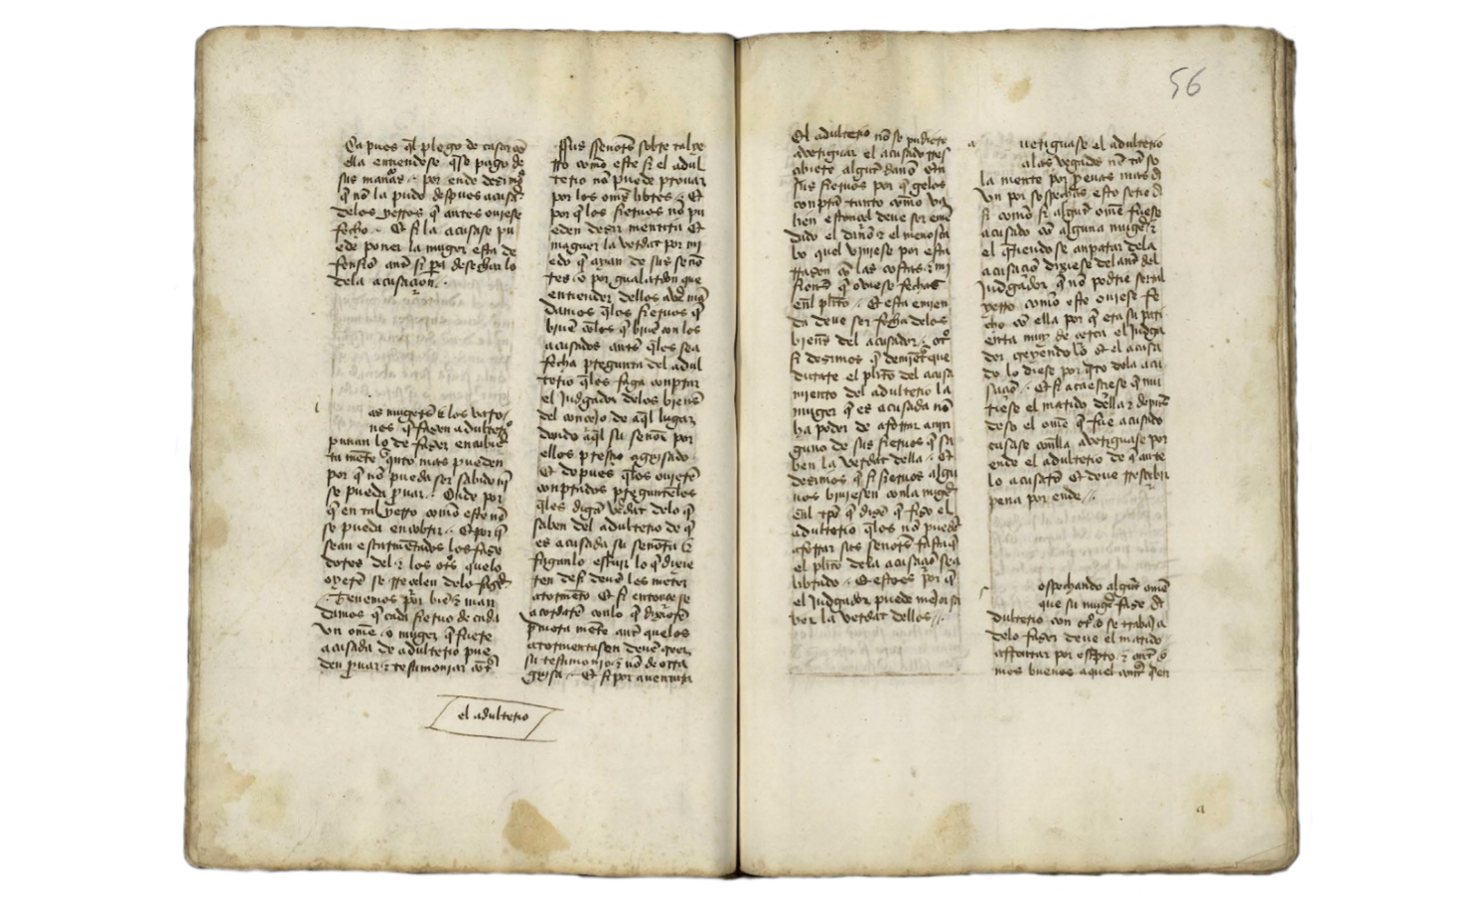 Ca pues ql plogo de casar cõ
ella entiendese q̃ se pago de
sus mañas .. por ende dezimos
q̃ nõ la puede despues acusar
delos yerros q̃ antes oviese
fecho .. Et si la acusase pu
ede poner la muger esta de
fension ante si pa desechar lo
dela acusacion ..
as mugeres & los varo
nes q̃ fazen adulterio
punan lo de fazer encubier
ta mẽte quanto mas pueden
por q̃ nõ pueda ser sabido nj̃
se pueda prouar .. Onde por
q̃ en tal yerro como este nõ
se pueda encobrir .. Et por q̃
sean escarmẽtados los faze
dores del & los otros quelo
oyerẽ se rreçelen delo fazer
Tenemos por biẽ & man
damos q̃ cada sieruo de cada
vn ome o muger q̃ fuere
acusada de adulterio pue
den prouar & testimoniar cõtra
sus señores sobre tal ye
rro como este si el adul
terio nõ puede prouar
por los omes libres .. Et
por q̃ los sieruos nõ pu
eden dezir mentira Et
maguer la verdat por mi
edo q̃ ayan de sus seño
res .. o por gualardon que
entienden dellos aver mã
damos q̃ los sieruos q̃
biuẽ cõ los q̃ biuẽ con los
acusados ante q̃ les sea
fecha pregunta del adul
terio q̃ les faga conprar
el Judgador delos bienes
del conçejo de aql lugar
dando aql su señor por
ellos preçio aguisado
Et depues q̃ los ouierẽ
conprados preguntẽlos
q̃ les digã verdat delo q̃
saben del adulterio de q̃
es acusada su señora &
faganlo escriuir lo q̃ dixie
ren desi deuẽ les meter
a tormẽto Et si entonçe se
acordarẽ conlo q̃ dixierõ
primera mẽte ante quelos
atormentasen deuẽ creer
su testimonio & nõ de otra
guisa .. Et si por auentura
el adulterio
56
El adulterio nõ se pudiere
averiguar el acusador rres
çibiere algun daño en
sus sieruos por q̃ gelos
conprã tanto como va
lien estonçe deue ser emẽ
dado el daño & el menosca
bo quel viniese por esta
rrazon cõ las costas & mi
siones q̃ oviese fechas
enl plito .. Et esta emien
da deue ser fecha delos
bienes del acusador .. otro
si dezimos q̃ demientre que
durare el plito del acusa
miento del adulterio la
muger q̃ es acusada nõ
ha poder de aforrar njn
guno de sus sieruos q̃ sa
ben la verdat della .. Et
dezimos q̃ si sieruos algu
nos biuiesen conla muger
enl tpo q̃ dizẽ q̃ fizo el
adulterio q̃ los nõ puede
aforrar sus señores fasta q̃
el plito dela acusaçiõ sea
librado .. Et esto es por q̃
el Judgador puede mejor sa
ber la verdat dellos ..
a
ueriguase el adulterio
alas vegadas nõ tã so
la mente por prueuas mas avn
por sospechas esto serie
si como si algun ome fuese
acusado cõ alguna muger &
el q̃riendo se anparar dela
acusaciõ dixiese delante del
Judgador q̃ nõ podrie ser tal
yerro como este oviese fe
cho cõ ella por q̃ era su pari
enta muy de çerca el Judga
dor creyendo lo Et el acusa
do lo diese por quito dela acu
saciõ .. Et si acaesçiese q̃ mu
riese el marido della & depues
deso el ome q̃ fue acusado
casase conella averiguase por
ende el adulterio de q̃ ante
lo acusarõ Et deue rresçebir
pena por ende ..
ospechando algun ome
que su muger faze a
dulterio con otro o se trabaja
delo fazer deue el marido
affrontar por escripto & ante o
mes buenos aquel contra q̃en
a